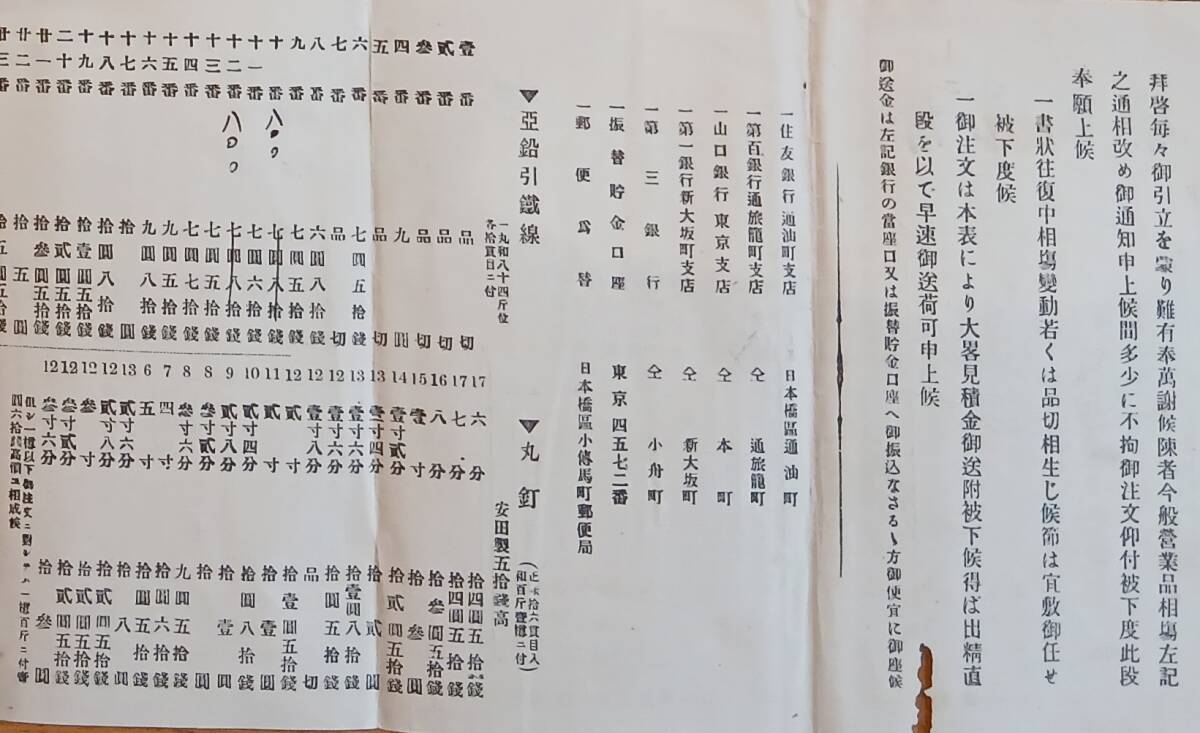 拜啓毎々御引立を蒙り難有奉萬謝候陳者今般營業品相塲左記
之通相改め御通知申上候間多少に不拘御注文仰付被下度此段
奉願上候
一書狀往復中相塲變動若くは品切相生じ候節は宜敷御任せ
被下度候
一御注文は本表により大畧見積金御送附被下候得ば出精直
段を以て早速御送荷可申上候
御送金は左記銀行の當座口又は振替貯金口座へ御振込なさるゝ方御便宜に御座候
一住友銀行通油町支店 日本橋區通油町
一第百銀行通旅籠町支店 仝 通旅籠町
一山口銀行東京支店 仝 本町
一第一銀行新大坂町支店 仝 新大坂町
一第三銀行 仝 小舟町
一振替貯金口座 東京四五七二番
一郵便爲替 日本橋區小傳馬町郵便局
▼亞鉛引鐵線 一丸和八十四斤位 各拾貫目ニ付
壹番 品切
貳番 品切
叁番 品切
四番 九圓
五番 品切
六番 七圓五拾錢
七番 品切
八番 六圓八拾錢
九番 七圓五拾錢
十番 七圓八拾錢
十一番 八〇〇 七圓六拾錢
十二番 八〇〇 七圓八拾錢
十三番 七圓五拾錢
十四番 七圓七拾錢
十五番 七圓五拾錢
十六番 九圓八拾錢
十七番 拾圓
十八番 拾圓八拾錢
十九番 拾壹圓五拾錢
二十番 拾貳圓五拾錢
廿一番 拾叁圓五拾錢
廿二番 拾五圓
廿三番 拾五圓五拾錢
▼丸釘 (正味拾六貫目入 和百斤壹樽ニ付)
安田製五拾錢高
17 六分 拾四圓五拾錢
17 七分 拾四圓五拾錢
16 八分 拾叁圓五拾錢
15 壹寸 拾叁圓
14 壹寸貳分 拾貳圓五拾錢
13 壹寸四分 拾貳圓
13 壹寸六分 拾壹圓八拾錢
12 壹寸八分 拾圓五拾錢
12 貳寸 品切
12 貳寸 拾壹圓五拾錢
11 貳寸 拾壹圓
10 貳寸四分 拾圓八拾錢
9 貳寸八分 拾壹圓
8 叁寸貳分 拾圓
8 叁寸六分 九圓五拾錢
7 四寸 拾圓六拾錢
6 五寸 拾圓五拾錢
13 貳寸六分 拾八圓
12 貳寸八分 拾貳圓五拾錢
12 叁寸 拾貳圓五拾錢
12 叁寸貳分 拾貳圓五拾錢
12 叁寸六分 拾叁圓
但シ一樽以下御注文ニ對シテハ一樽百斤ニ付壹
圓六拾錢高價ニ相成候